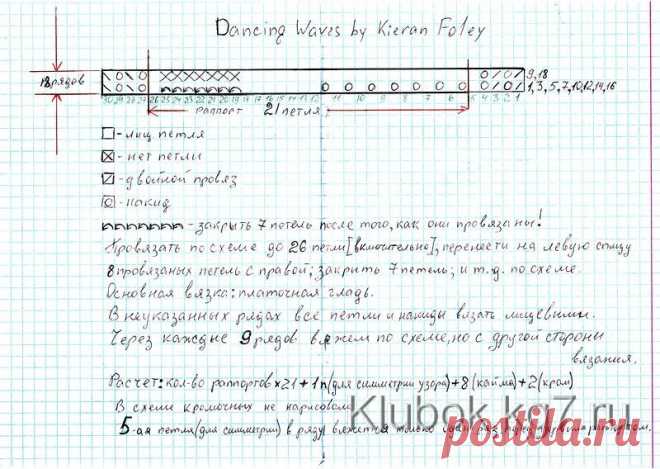 Dancing Waves by Kieran Foley
18 рядов
9,18
1,3,5,7,10,12,14,16
30 29 28 27 26 25 24 23 22 21 20 19 18 17 16 15 14 13 12 11 10 9 8 7 6 5 4 3 2 1
раппорт 21 петля
- лиц петля
- нет петли
- двойной провяз
- накид
- закрыть 7 петель после того, как они провязаны!
Провязать по схеме до 26 петли [включительно], перенести на левую спицу
8 провязаных петель с правой; закрыть 7 петель; и т.д. по схеме.
Основная вязка: платочная гладь.
В неуказанных рядах все петли и накиды вязать лицевыми.
Через каждые 9 рядов вяжем по схеме, но с другой стороны
вязания.
Расчет: кол-во раппортов х 21 + 1п (для симметрии узора) + 8 (кайма) + 2 (кром)
В схеме кромочных не нарисовала
5-ая петля (для симметрии) в ряду вяжется только один раз, перед первым раппортом.
Klubok.ka7.ru
postila.ru